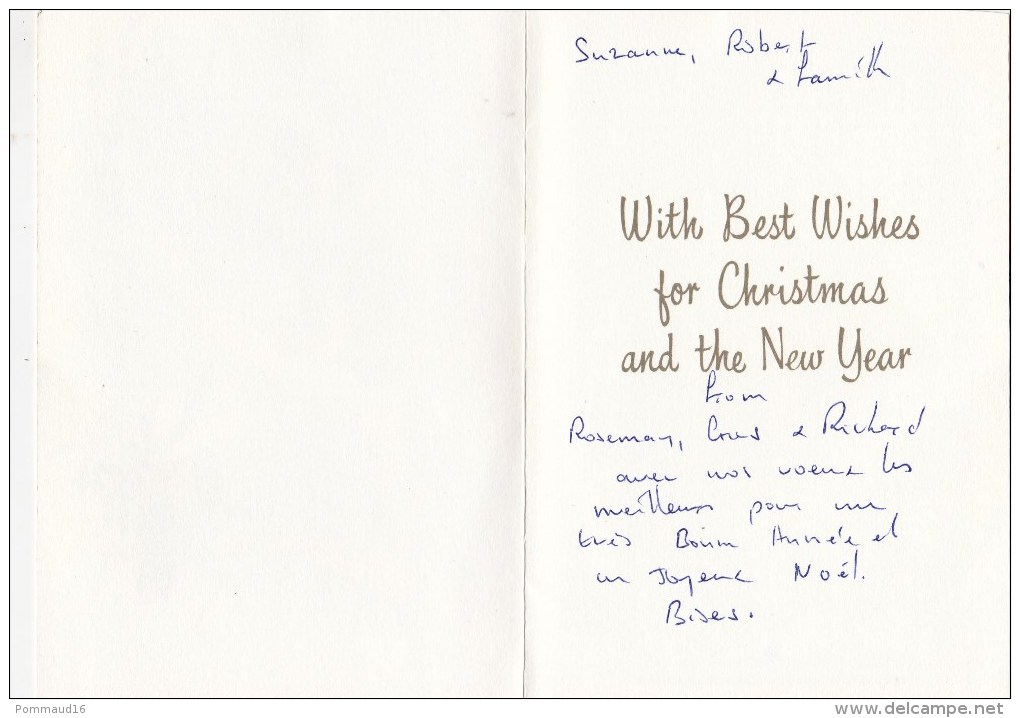 Suzanne, Robert
& Famille
With Best Wishes
for Christmas
and the New Year
from
Rosemary, & Richard
avec nos voeux les
meilleurs pour un
très Bonne Année et
un Joyeux Noël.
Bises.
Pommaud16
www.delcampe.net